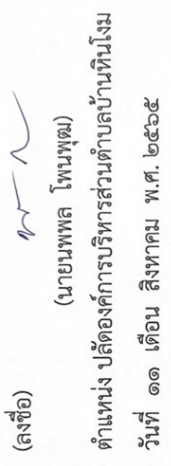 (ลงชื่อ)
(นายนพพล โพนพุฒ)
ตำแหน่ง ปลัดองค์การบริหารส่วนตำบลบ้านหินโงม
วันที่ ๑๑ เดือน สิงหาคม พ.ศ. ๒๕๖๕